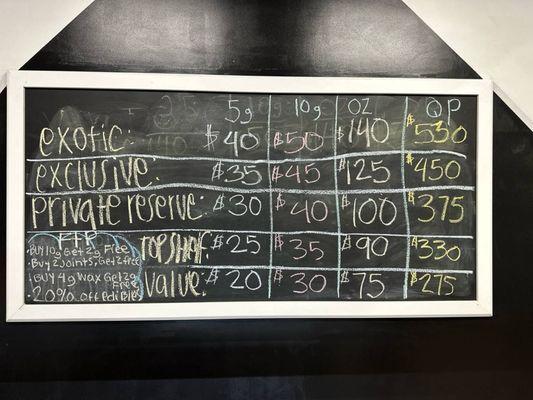 5g 10g OZ QP
exotic: $40 $50 $140 $530
exclusive: $35 $45 $125 $450
private reserve: $30 $40 $100 $375
top shelf: $25 $35 $90 $330
value: $20 $30 $75 $275
FTP
·BUY 10g Get 2g Free
·Buy 2 Joints, Get 2 free
·BUY 4g Wax Get 2g
Free
20% off edibles